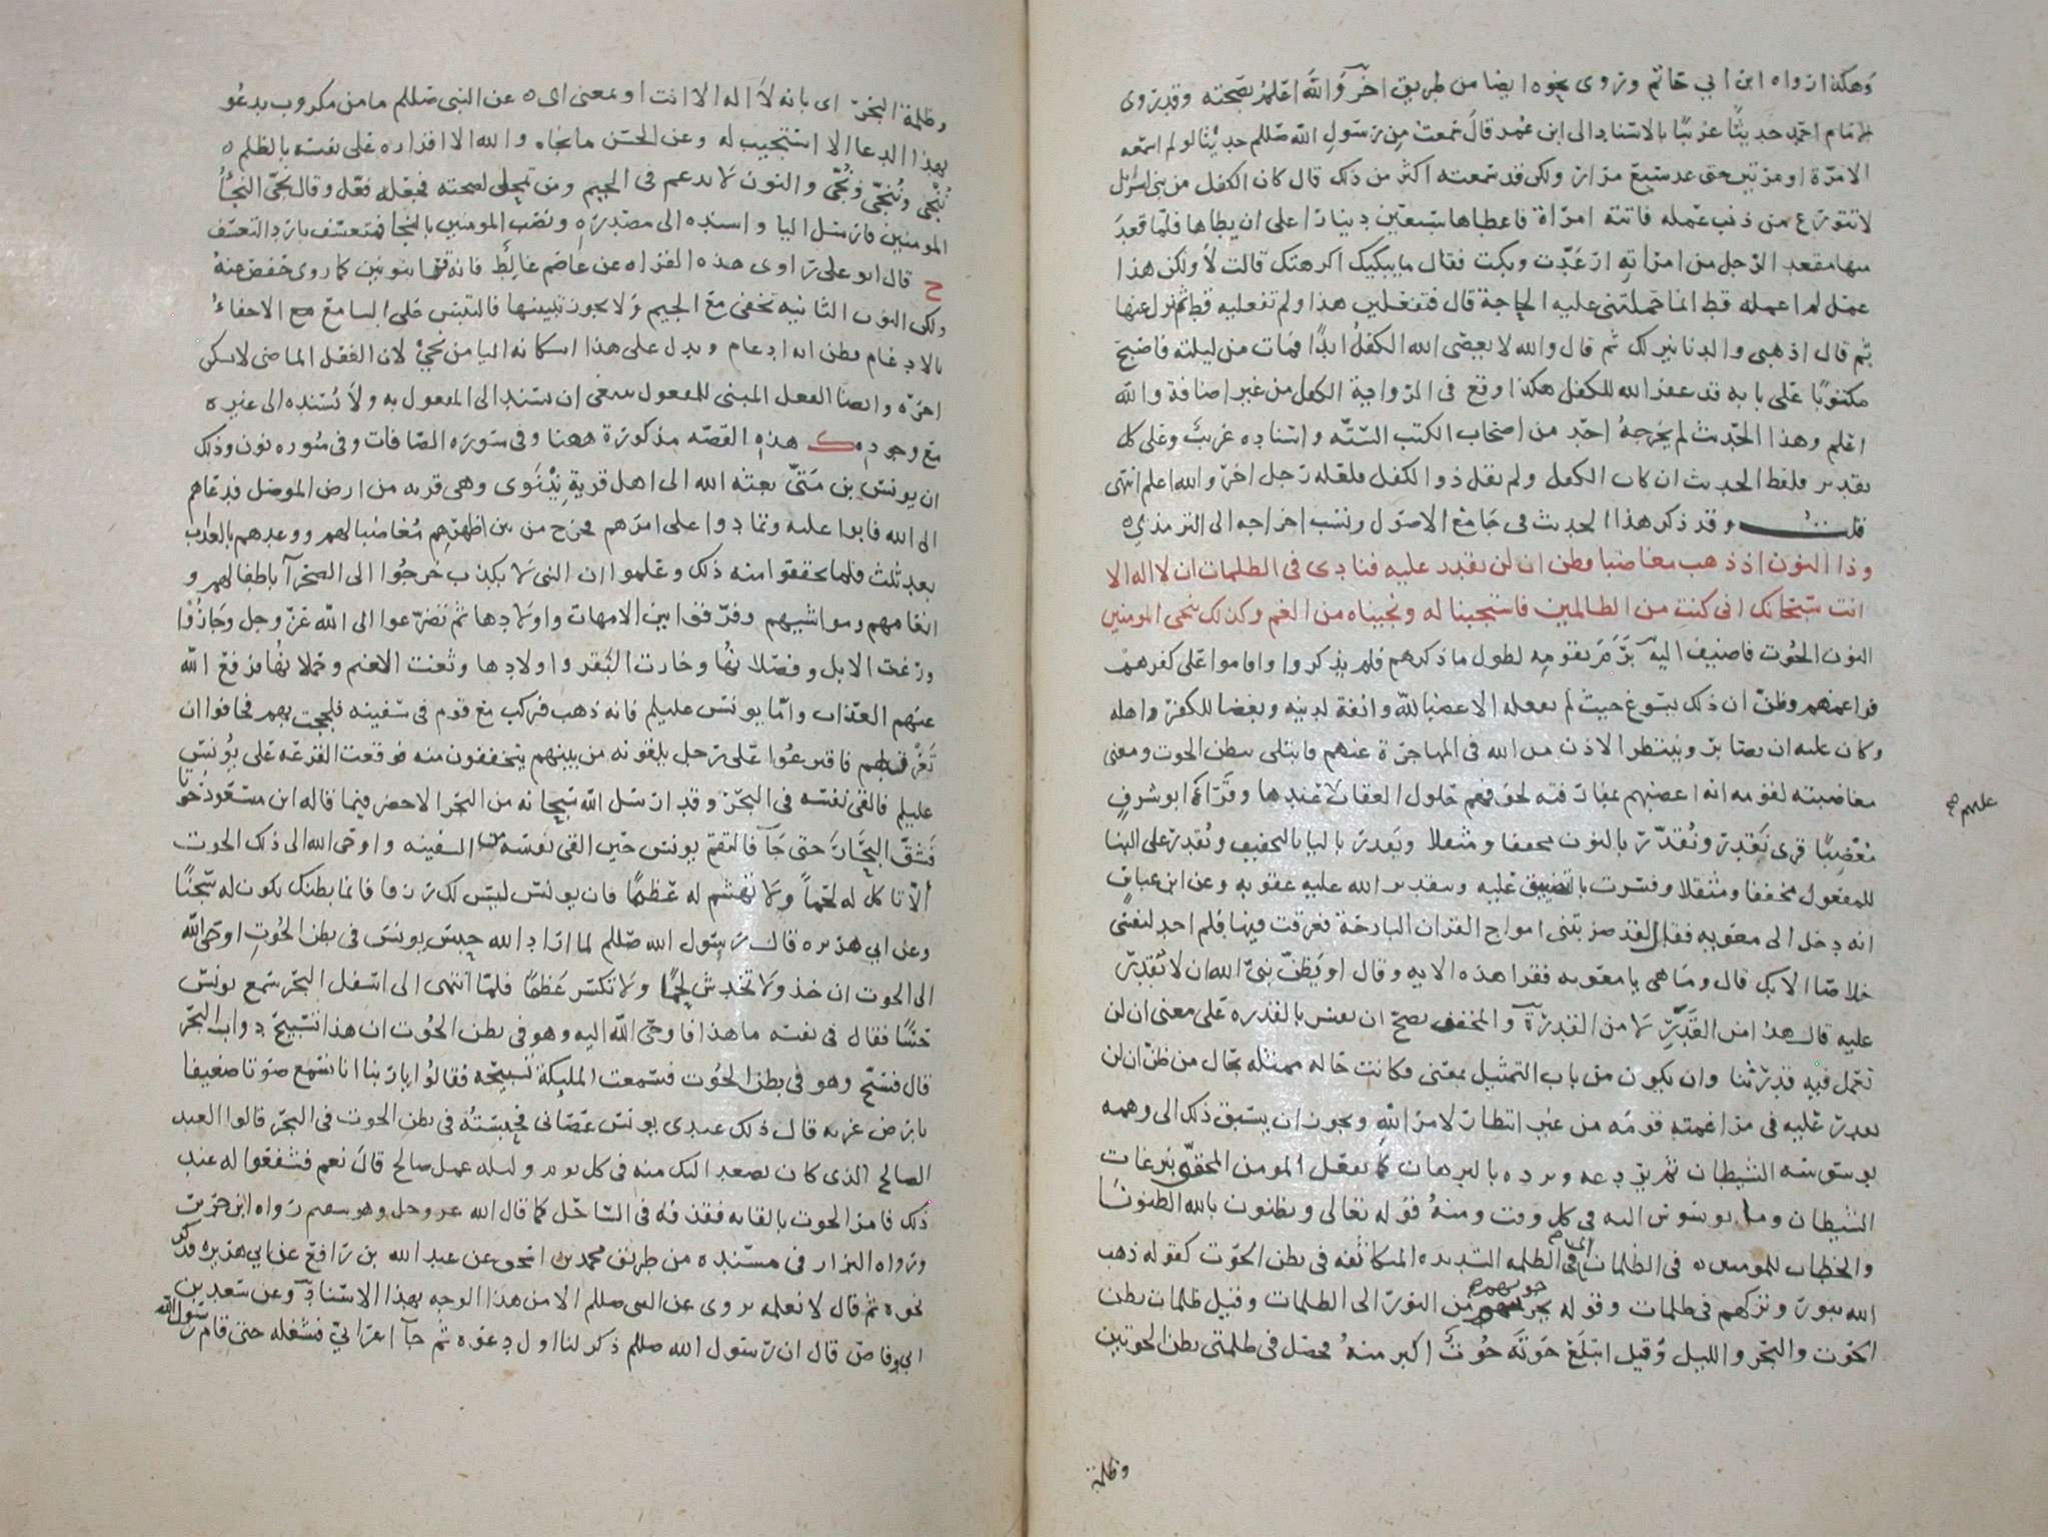 وهكذا رواه ابن ابي حاتم وروى نحوه ايضا من طريق اخر والله اعلم بصحته وقد روى
الامام احمد حديثا غريبا بالاسناد الى ابن عمر قال سمعت من رسول الله صللم حديثا لو لم اسمعه
الا مرة او مرتين حتى عد سبع مرار ولكن قد سمعته اكثر من ذلك قال كان الكفل من بني اسرائل
لا يتورع من ذنب عمله فاتته امراة فاعطاها ستين دينارا على ان يطاها فلما قعد
منها مقعد الرجل من امراته ارعدت وبكت فقال ما يبكيك اكرهتك قالت لا ولكن هذا
عمل لم اعمله قط انما حملتني عليه الحاجة قال فتفعلين هذا ولم تفعليه قط ثم نزل عنها
ثم قال اذهبي والدنانير لك ثم قال والله لا يعصى الله الكفل ابدا فمات من ليلته فاصبح
مكتوبا على بابه قد غفر الله للكفل هكذا وقع في الرواية الكفل من غير اضافة والله
اعلم وهذا الحديث لم يخرجه احد من اصحاب الكتب الستة واسناده غريب وعلى كل
تقدير فلفظ الحديث ان كان الكفل ولم يقل ذو الكفل فلعله رجل اخر والله اعلم انتهى
قلت وقد ذكر هذا الحديث في جامع الاصول ونسب اخراجه الى الترمذي ه
وذا النون اذ ذهب مغاضبا فظن ان لن نقدر عليه فنادى في الظلمات ان لا اله الا
انت سبحانك اني كنت من الظالمين فاستجبنا له ونجيناه من الغم وكذلك ننجي المومنين
النون الحوت فاضيف اليه برم بقومه لطول ما ذكرهم فلم يذكروا واقاموا على كفرهم
فراغمهم وظن ان ذلك يسوغ حيث لم يفعله الا غضبا لله وانفة لدينه وبغضا للكفر واهله
وكان عليه ان يصابر وينتظر الاذن من الله في المهاجرة عنهم فابتلي ببطن الحوت ومعنى
مغاضبته لقومه انه اغضبهم بمفارقته لخوفهم حلول العقاب عندها وقراة ابو شرف
مغضبا قرى نقدر ونقدر بالنون مخففا ومثقلا ويقدر باليا بالتخفيف ويقدر على البنا
للمفعول مخففا ومثقلا وفسرت بالتضييق عليه وبتقدير الله عليه عقوبه وعن ابن عباس
انه دخل الى معويه فقال لقد ضربتني امواج القران البارحة فغرقت فيها فلم اجد لنفسي
خلاصا الا بك قال وما هي يا معويه فقرا هذه الايه وقال او يظن نبي الله ان لا يقدر
عليه قال هذا من القدر لا من القدرة والمخفف يصح ان يفسر بالقدره على معنى ان لن
نعمل فيه قدرتنا وان يكون من باب التمثيل بمعنى فكانت حاله ممثله بحال من ظن ان لن
نقدر عليه في مراغمته قومه من غير انتظار لامر الله ويجوز ان يسبق ذلك الى وهمه
بوسوسة الشيطان ثم يردعه ويرده بالبرهان كما يفعل المومن المحقق بنزغات
الشيطان وما يوسوس اليه في كل وقت ومنه قوله تعالى وتظنون بالله الظنونا
والخطاب للمومنين ه في الظلمات اي في الظلمه الشديده المتكاثفه في بطن الحوت كقوله ذهب
الله بنورهم وتركهم في ظلمات وقوله يخرجونهم من النور الى الظلمات وقيل ظلمات بطن
الحوت والبحر والليل وقيل ابتلع حوته حوت اكبر منه فحصل في ظلمتي بطن الحوتين
وظلمة
وظلمة البحر اي بانه لا اله الا انت او بمعنى اي ه عن النبي صللم ما من مكروب يدعو
بهذا الدعا الا استجيب له وعن الحسن ما نجاه والله الا اقراره على نفسه بالظلم ه
ننجي وننجي ونجي والنون لا تدغم في الجيم ومن تمحل لصحته فجعله فعل وقال نجي النجا
المومنين فارسل اليا واسنده الى مصدره ونصب المومنين بالنجا فمتعسف بارد التعسف
ح قال ابو علي راوي هذه القراه عن عاصم غالط فانه قرا بنونين كما روى حفص عنه
ولكن النون الثانيه تخفى مع الجيم ولا يجوز تبيينها فالتبس على السامع الاخفاء
بالادغام فظن انه ادغام ويدل على هذا اسكانه اليا من نجي لان الفعل الماضي لا يسكن
اخره وايضا الفعل المبني للمفعول ينبغي ان يسند الى المفعول به ولا يسنده الى غيره
مع وجوده ك هذه القصه مذكورة ههنا وفي سورة الصافات وفي سوره نون وذلك
ان يونس بن متى بعثه الله الى اهل قرية نينوى وهي قريه من ارض الموصل فدعاهم
الى الله فابوا عليه وتمادوا على امرهم فخرج من بين اظهرهم مغاضبا لهم ووعدهم بالعذاب
بعد ثلث فلما تحققوا منه ذلك وعلموا ان النبي لا يكذب خرجوا الى الصحرا باطفالهم و
انعامهم ومواشيهم وفرقوا بين الامهات واولادها ثم تضرعوا الى الله عز وجل وجاروا
ورغت الابل وفصلانها وخارت البقر واولادها وثغت الاغنم وحملانها فرفع الله
عنهم العذاب واما يونس عليلم فانه ذهب فركب مع قوم في سفينه فلججت بهم فخافوا ان
تغرق بهم فاقترعوا على رجل يلقونه من بينهم يتخففون منه فوقعت القرعه على يونس
عليلم فالقى نفسه في البحر وقد ارسل الله سبحانه من البحر الاخضر فيما قاله ابن مسعود حوتا
فشق البحار حتى جا فالتقم يونس حين القى نفسه من السفينه واوحى الله الى ذلك الحوت
الا تاكل له لحما ولا تهشم له عظما فان يونس ليس لك رزقا فانما بطنك يكون له سجنا
وعن ابي هريره قال رسول الله صللم لما اراد الله حبس يونس في بطن الحوت اوحى الله
الى الحوت ان خذه ولا تخدش لحما ولا تكسر عظما فلما انتهى الى اسفل البحر سمع يونس
حسا فقال في نفسه ما هذا فاوحى الله اليه وهو في بطن الحوت ان هذا تسبيح دواب البحر
قال فسبح وهو في بطن الحوت فسمعت المليكة تسبيحه فقالوا يا ربنا انا نسمع صوتا ضعيفا
بارض غربه قال ذلك عبدي يونس عصاني فحبسته في بطن الحوت في البحر قالوا العبد
الصالح الذي كان يصعد اليك منه في كل يوم وليله عمل صالح قال نعم فشفعوا له عند
ذلك فامر الحوت بالقايه فقذفه في الساحل كما قال الله عز وجل وهو سقيم رواه ابن جرير
ورواه البزار في مسنده من طريق محمد بن اسحق عن عبد الله بن رافع عن ابي هريره فذكر
نحوه ثم قال لا نعلمه يروى عن النبي صللم الا من هذا الوجه بهذا الاسناد وعن سعد بن
ابي وقاص قال ان رسول الله صللم ذكر لنا اول دعوه ثم جا اعرابي فشغله حتى قام رسول الله